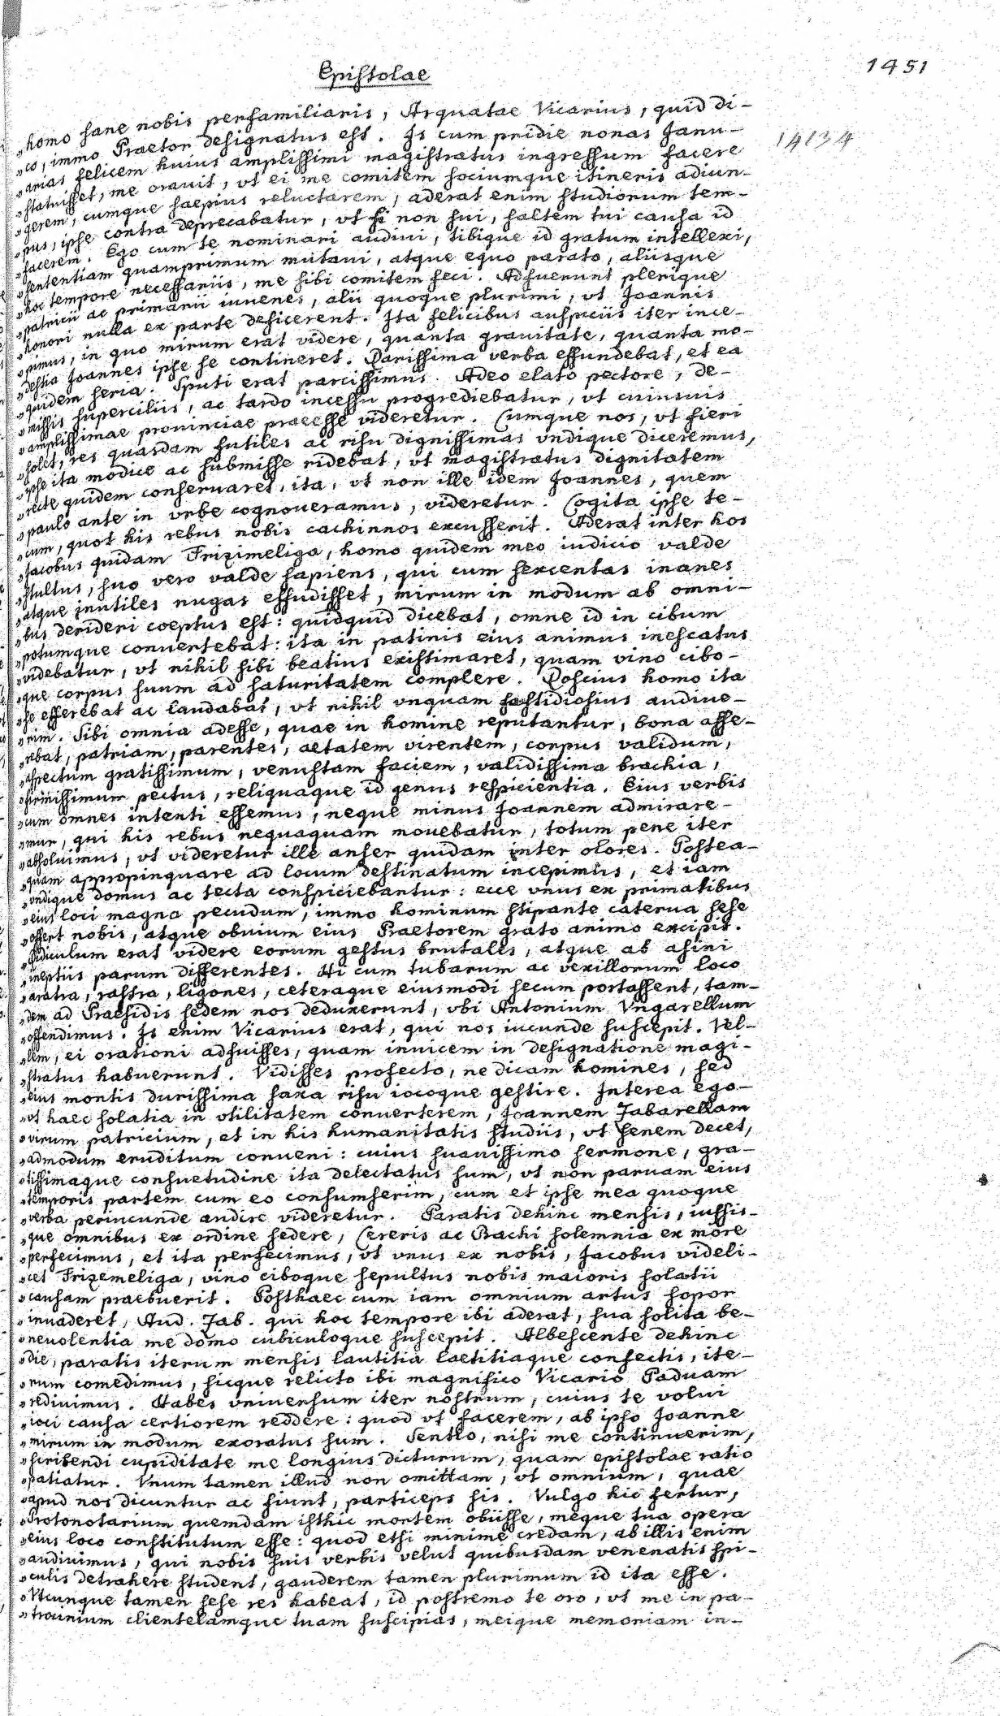 Epistolae
1451
14134
„homo sane nobis perfamiliaris, Arquatae Vicarius, quid di-
„co, immo Praetor designatus est. Is cum pridie nonas Janu-
„arias felicem huius amplissimi magistratus ingressum facere
„statuisset, me orauit, vt ei me comitem sociumque itineris adiun-
„gerem, cumque saepius reluctarem, aderat enim studiorum tem-
„pus, ipse contra deprecabatur, vt si non sui, saltem tui causa id
„facerem. Ego cum te nominari audiui, tibique id gratum intellexi,
„sententiam quamprimum mutaui, atque equo parato, aliisque
„hoc tempore necessariis, me sibi comitem feci. Adfuerunt plerique
„patricii ac primarii iuuenes, alii quoque plurimi, vt Joannis
„honori nulla ex parte deficerent. Ita felicibus auspiciis iter ince-
„pimus, in quo mirum erat videre, quanta grauitate, quanta mo-
„destia Joannes ipse se contineret. Rarissima verba effundebat, et ea
„quidem seria. Sputi erat parcissimus. Adeo elato pectore, de-
„missis superciliis, ac tardo incessu progrediebatur, vt cuiusuis
„amplissimae prouinciae praeesse videretur. Cumque nos, vt fieri
„solet, res quasdam futiles ac risu dignissimas vndique diceremus,
„ipse ita modice ac submisse ridebat, vt magistratus dignitatem
„recte quidem conseruaret, ita, vt non ille idem Joannes, quem
„paulo ante in vrbe cognoueramus, videretur. Cogita ipse te-
„cum, quot his rebus nobis cachinnos excusserit. Aderat inter hos
„Jacobus quidam Frizimeliga, homo quidem meo iudicio valde
„stultus, suo vero valde sapiens, qui cum sexcentas inanes
„atque inutiles nugas effudisset, mirum in modum ab omni-
„bus derideri coeptus est: quidquid dicebat, omne id in cibum
„potumque conuertebat: ita in patinis eius animus inescatus
„videbatur, vt nihil sibi beatius existimaret, quam vino cibo-
„que corpus suum ad saturitatem complere. Roscius homo ita
„se efferebat ac laudabat, vt nihil vnquam fastidiosius audiue-
„rim. Sibi omnia adesse, quae in homine reputantur, bona asse-
„rebat, patriam, parentes, aetatem virentem, corpus validum,
„aspectum gratissimum, venustam faciem, validissima brachia,
„firmissimum pectus, reliquaque id genus respicientia. Eius verbis
„cum omnes intenti essemus, neque minus Joannem admirare-
„mur, qui his rebus nequaquam mouebatur, totum pene iter
„absoluimus, vt videretur ille anser quidam inter olores. Postea-
„quam appropinquare ad locum destinatum incepimus, et iam
„vndique domus ac tecta conspiciebantur: ecce vnus ex primatibus
„eius loci magna pecudum, immo hominum stipante caterua sese
„offert nobis, atque obuium eius Praetorem grato animo excipit.
„Ridiculum erat videre eorum gestus brutales, atque ab asini
„ineptiis parum differentes. Hi cum tubarum ac vexillorum loco
„aratra, rastra, ligones, ceteraque eiusmodi secum portassent, tam-
„dem ad Praesidis sedem nos deduxerunt, vbi Antonium Vngarellum
„offendimus. Is enim Vicarius erat, qui nos iucunde suscepit. Vel-
„lem, ei orationi adfuisses, quam inuicem in designatione magi-
„stratus habuerunt. Vidisses profecto, ne dicam homines, sed
„eius montis durissima saxa risu iocoque gestire. Interea ego-
„vt haec solatia in vtilitatem conuerterem, Joannem Jabarellam
„virum patricium, et in his humanitatis studiis, vt senem decet,
„admodum eruditum conueni: cuius suauissimo sermone, gra-
„tissimaque consuetudine ita delectatus sum, vt non paruam eius
„temporis partem cum eo consumserim, cum et ipse mea quoque
„verba periucunde audire videretur. Paratis dehinc mensis, iussis-
„que omnibus ex ordine sedere, Cereris ac Bachi solemnia ex more
„perfecimus, et ita perfecimus, vt vnus ex nobis, Jacobus videli-
„cet Frizemeliga, vino ciboque sepultus nobis maioris solatii
„causam praebuerit. Posthaec cum iam omnium artus sopor
„inuaderet, Aud. Jab. qui hoc tempore ibi aderat, sua solita be-
„neuolentia me domo cubiculoque suscepit. Albescente dehinc
„die, paratis iterum mensis lautitia laetitiaque confectis, ite-
„rum comedimus, sicque relicto ibi magnifico Vicario Paduam
„rediuimus. Habes vniuersum iter nostrum, cuius te volui
„ioci causa certiorem reddere: quod vt facerem, ab ipso Joanne
„mirum in modum exoratus sum. Sentio, nisi me continuerim,
„scribendi cupiditate me longius dicturum, quam epistolae ratio
„patiatur. Vnum tamen illud non omittam, vt omnium, quae
„apud nos dicuntur ac fiunt, particeps sis. Vulgo hic fertur,
„Protonotarium quemdam isthic mortem obiisse, meque tua opera
„eius loco constitutum esse: quod etsi minime credam, ab illis enim
„audiuimus, qui nobis suis verbis velut quibusdam venenatis spi-
„culis detrahere student, gauderem tamen plurimum id ita esse.
„Vtcunque tamen sese res habeat, id postremo te oro, vt me in pa-
„trocinium clientelamque tuam suscipias, meique memoriam in-